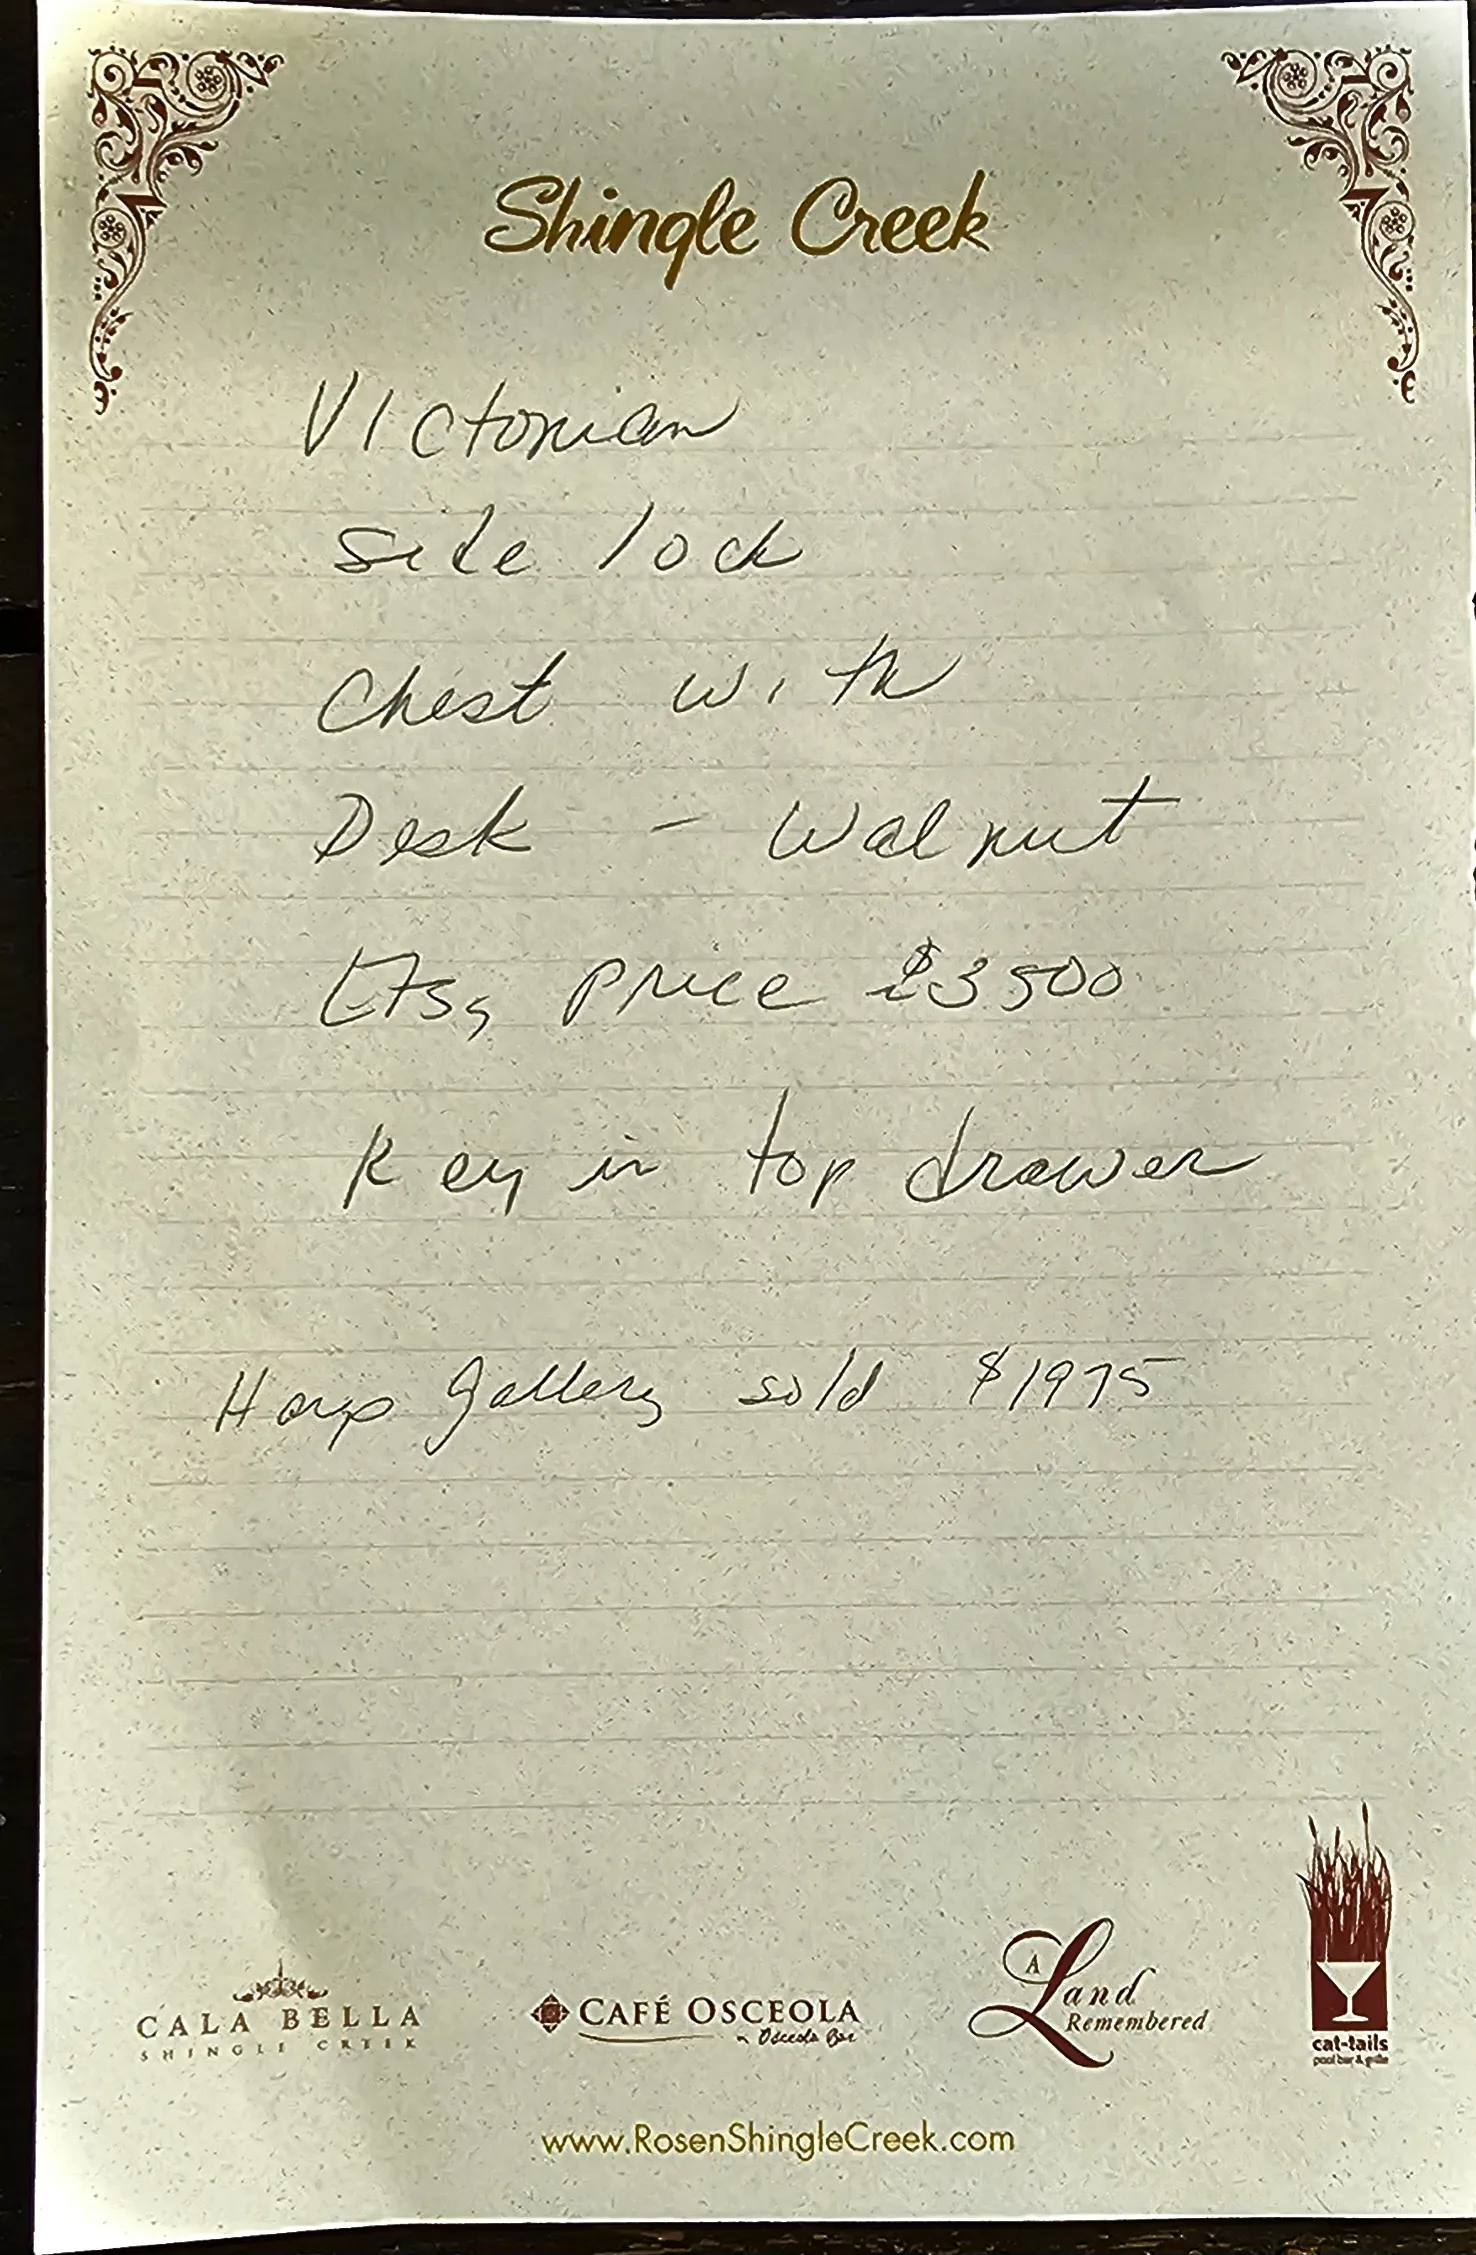 Shingle Creek
Victorian
side lock
Chest with
Desk - Walnut
price $3500
Key in top drawer
Harp Gallery sold $1975
CALA BELLA
SHINGLE CREEK
CAFÉ OSCEOLA
Osceola Bar
A Land
Remembered
cat-tails
pool bar & grille
www.RosenShingleCreek.com